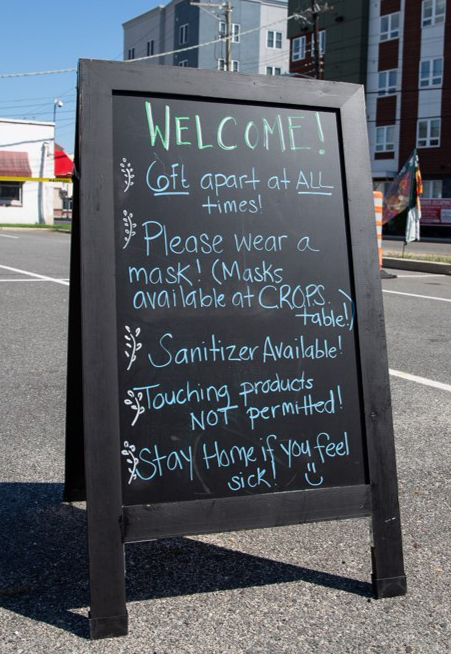 WELCOME!
6ft apart at ALL
times!
Please wear a
mask! (Masks
available at CROPS
table!)
Sanitizer Available!
Touching products
NOT permitted!
Stay Home if you feel
sick! :)